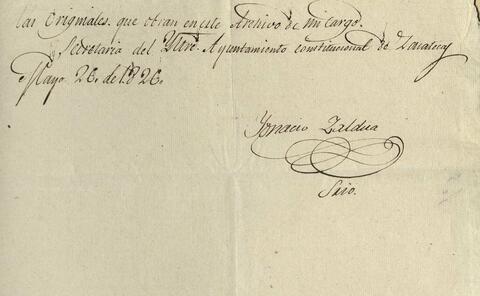 las Originales. que obran en este Archivo de mi cargo.
Secretaria del Yltre. Ayuntamiento constitucional de
Mayo 26. de 1826.
Ygnacio Zaldua
Srio.